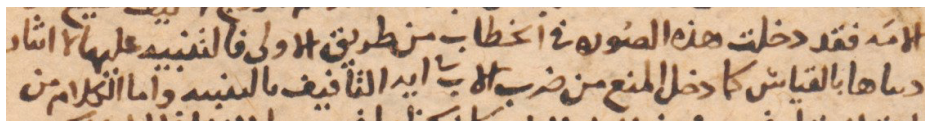 الامه فقد دخلت هذه الصوره في الخطاب من طريق الاولى فالتنبيه عليها لا انا
بالقياس كما دخل المنع من ضرب الاب في ايه التأفيف بالتنبيه واما الكلام من